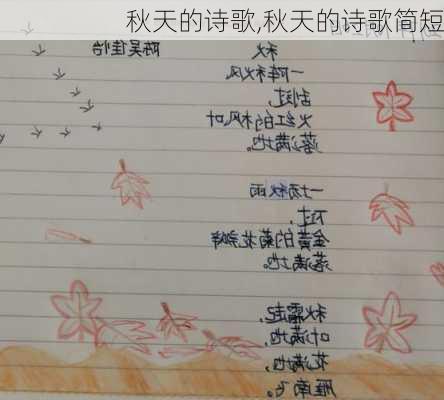 秋天的诗歌,秋天的诗歌简短
秋 陈吴佳怡
一阵秋风
刮过,
火红的枫叶
落满地。
一场秋雨
下过,
金黄的菊花瓣
落满地。
秋霜起,
叶满地,
花满地,
雁南飞。